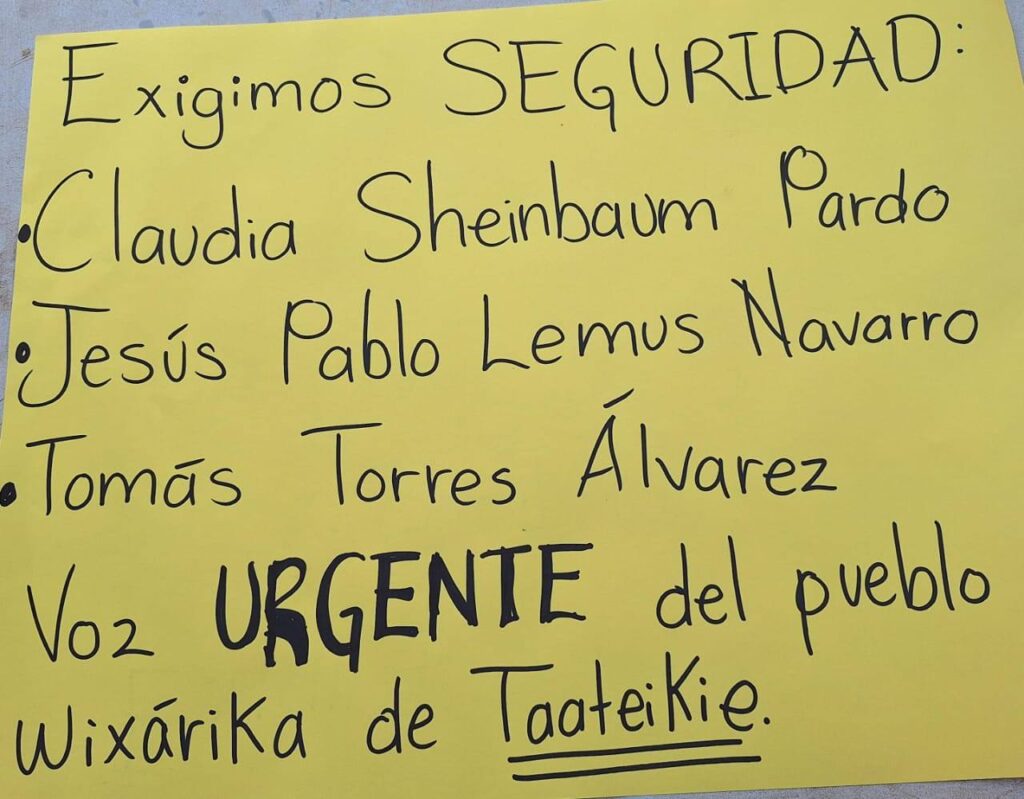 Exigimos SEGURIDAD:
•Claudia Sheinbaum Pardo
•Jesús Pablo Lemus Navarro
•Tomás Torres Álvarez
Voz URGENTE del pueblo
wixárika de Taateikie.